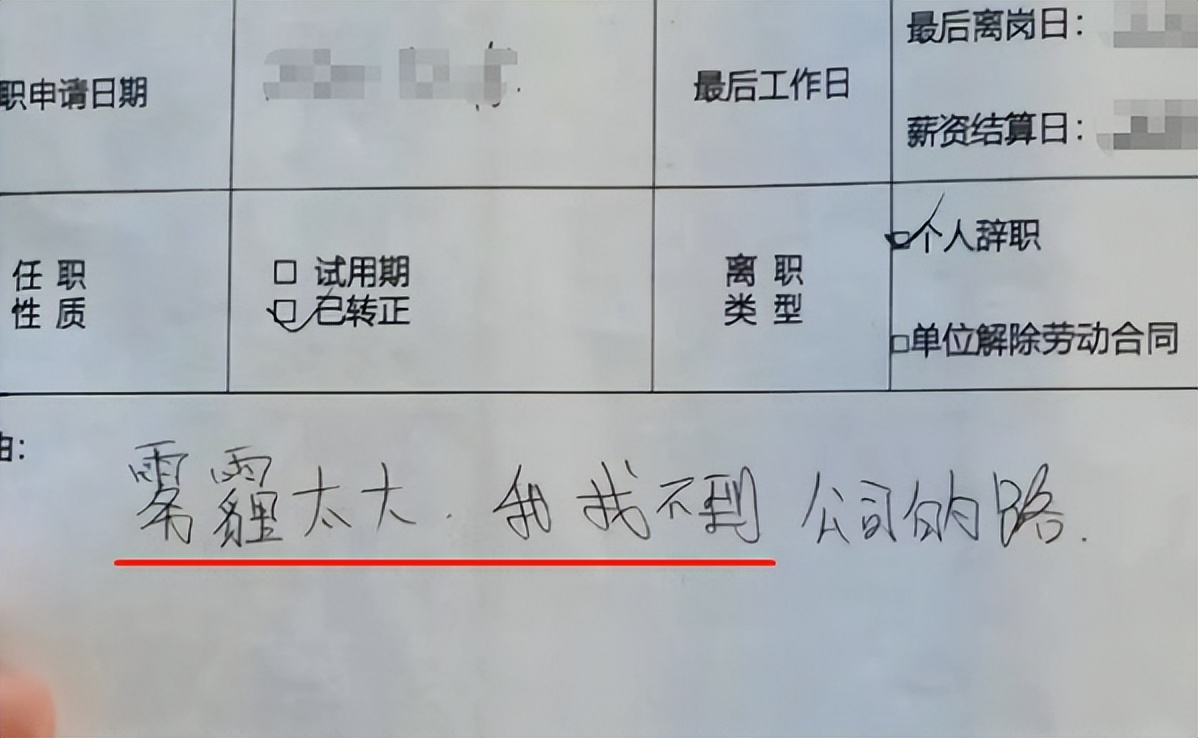 职申请日期
最后工作日
最后离岗日：
薪资结算日：
任职
性质
□ 试用期
□ 已转正
离职
类型
□个人辞职
□单位解除劳动合同
由：
雾霾太大．我找不到公司的路．